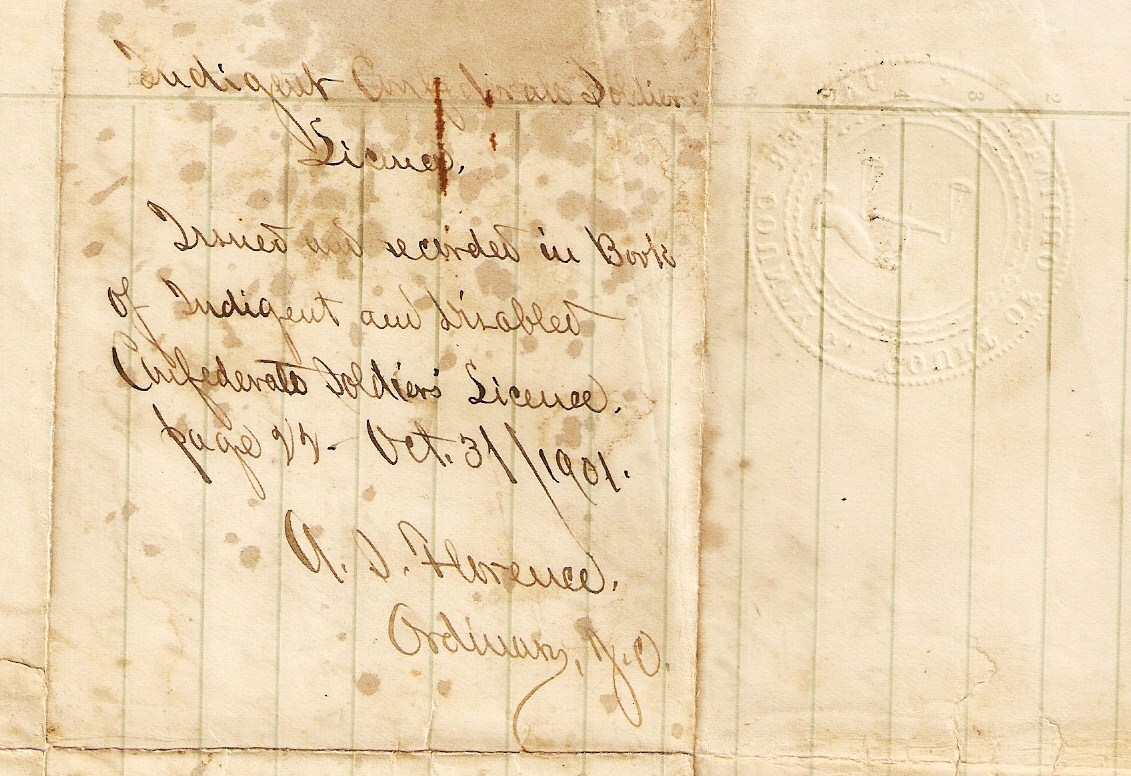 Indigent Confederate Soldiers
Licence.
Issued and recorded in Book
of Indigent and Disabled
Confederate Soldiers' Licence.
page 22- Oct. 31//1901.
A. S. Florence.
Ordinary,